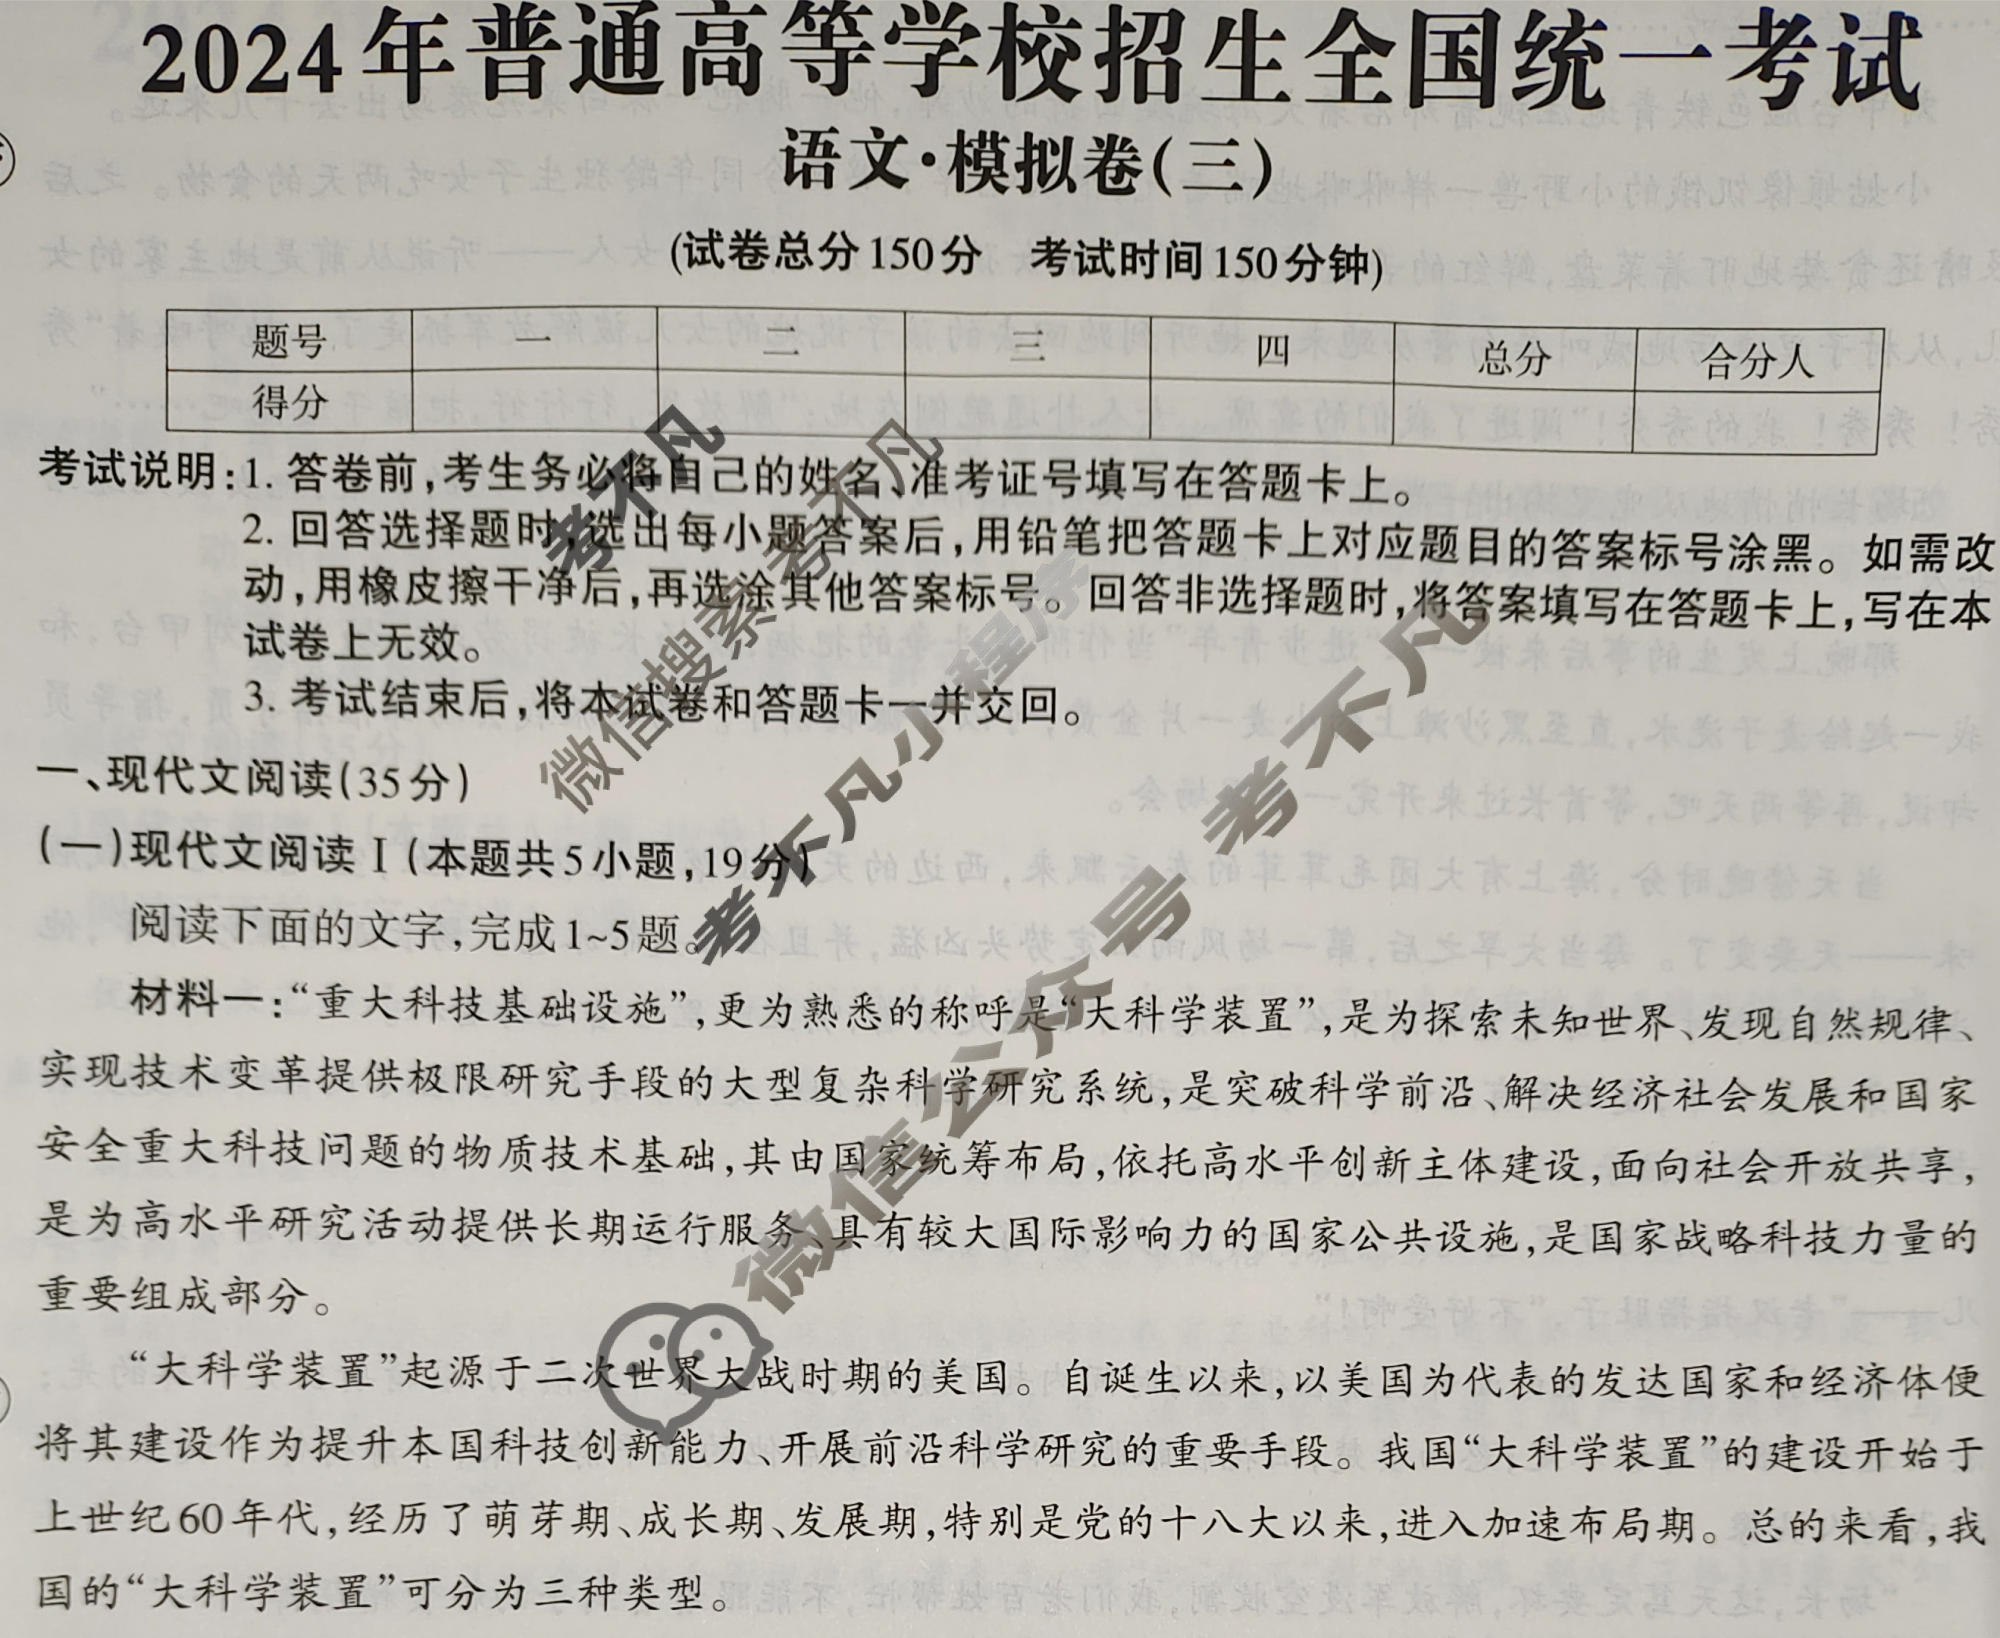 2024年普通高等学校招生全国统一考试
语文·模拟卷(三)
(试卷总分150分 考试时间150分钟)
题号 一 二 三 四 总分 合分人
得分
考试说明:1. 答卷前,考生务必将自己的姓名、准考证号填写在答题卡上。
2. 回答选择题时,选出每小题答案后,用铅笔把答题卡上对应题目的答案标号涂黑。如需改
动,用橡皮擦干净后,再选涂其他答案标号。回答非选择题时,将答案填写在答题卡上,写在本
试卷上无效。
3. 考试结束后,将本试卷和答题卡一并交回。
一、现代文阅读(35分)
(一)现代文阅读Ⅰ(本题共5小题,19分)
阅读下面的文字,完成1~5题。
材料一:“重大科技基础设施”,更为熟悉的称呼是“大科学装置”,是为探索未知世界、发现自然规律、
实现技术变革提供极限研究手段的大型复杂科学研究系统,是突破科学前沿、解决经济社会发展和国家
安全重大科技问题的物质技术基础,其由国家统筹布局,依托高水平创新主体建设,面向社会开放共享,
是为高水平研究活动提供长期运行服务、具有较大国际影响力的国家公共设施,是国家战略科技力量的
重要组成部分。
“大科学装置”起源于二次世界大战时期的美国。自诞生以来,以美国为代表的发达国家和经济体便
将其建设作为提升本国科技创新能力、开展前沿科学研究的重要手段。我国“大科学装置”的建设开始于
上世纪60年代,经历了萌芽期、成长期、发展期,特别是党的十八大以来,进入加速布局期。总的来看,我
国的“大科学装置”可分为三种类型。
考不凡
微信搜索 考不凡
考不凡小程序
微信公众号 考不凡